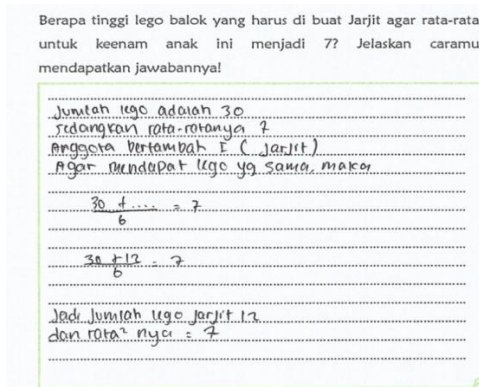 Berapa tinggi lego balok yang harus di buat Jarjit agar rata-rata
untuk keenam anak ini menjadi 7? Jelaskan caramu
mendapatkan jawabannya!
Jumlah lego adalah 30
sedangkan rata-ratanya 7
Anggota bertambah I ( Jarjit)
Agar mendapat lego yg sama, maka
30 + .... = 7
6
30 + 12 = 7
6
Jadi Jumlah lego Jarjit 12
dan rata² nya = 7